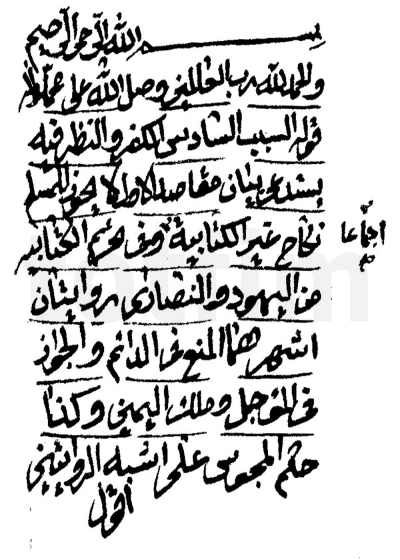 بسم الله الرحمن الرحيم
والحمد لله رب العالمين وصلى الله على محمد وآله
قوله السبب السادس الكفر والنظر فيه
يستدعى بيان مقاصد الاول لا يجوز للمسلم
نكاح غير الكتابية وفى تحريم الكتابيه
اجماعا
من اليهود والنصارى روايتان
اشهرهما المنع فى الدائم والجواز
فى المؤجل وملك اليمين وكذا
حكم المجوس على اشبه الروايتين
اقول